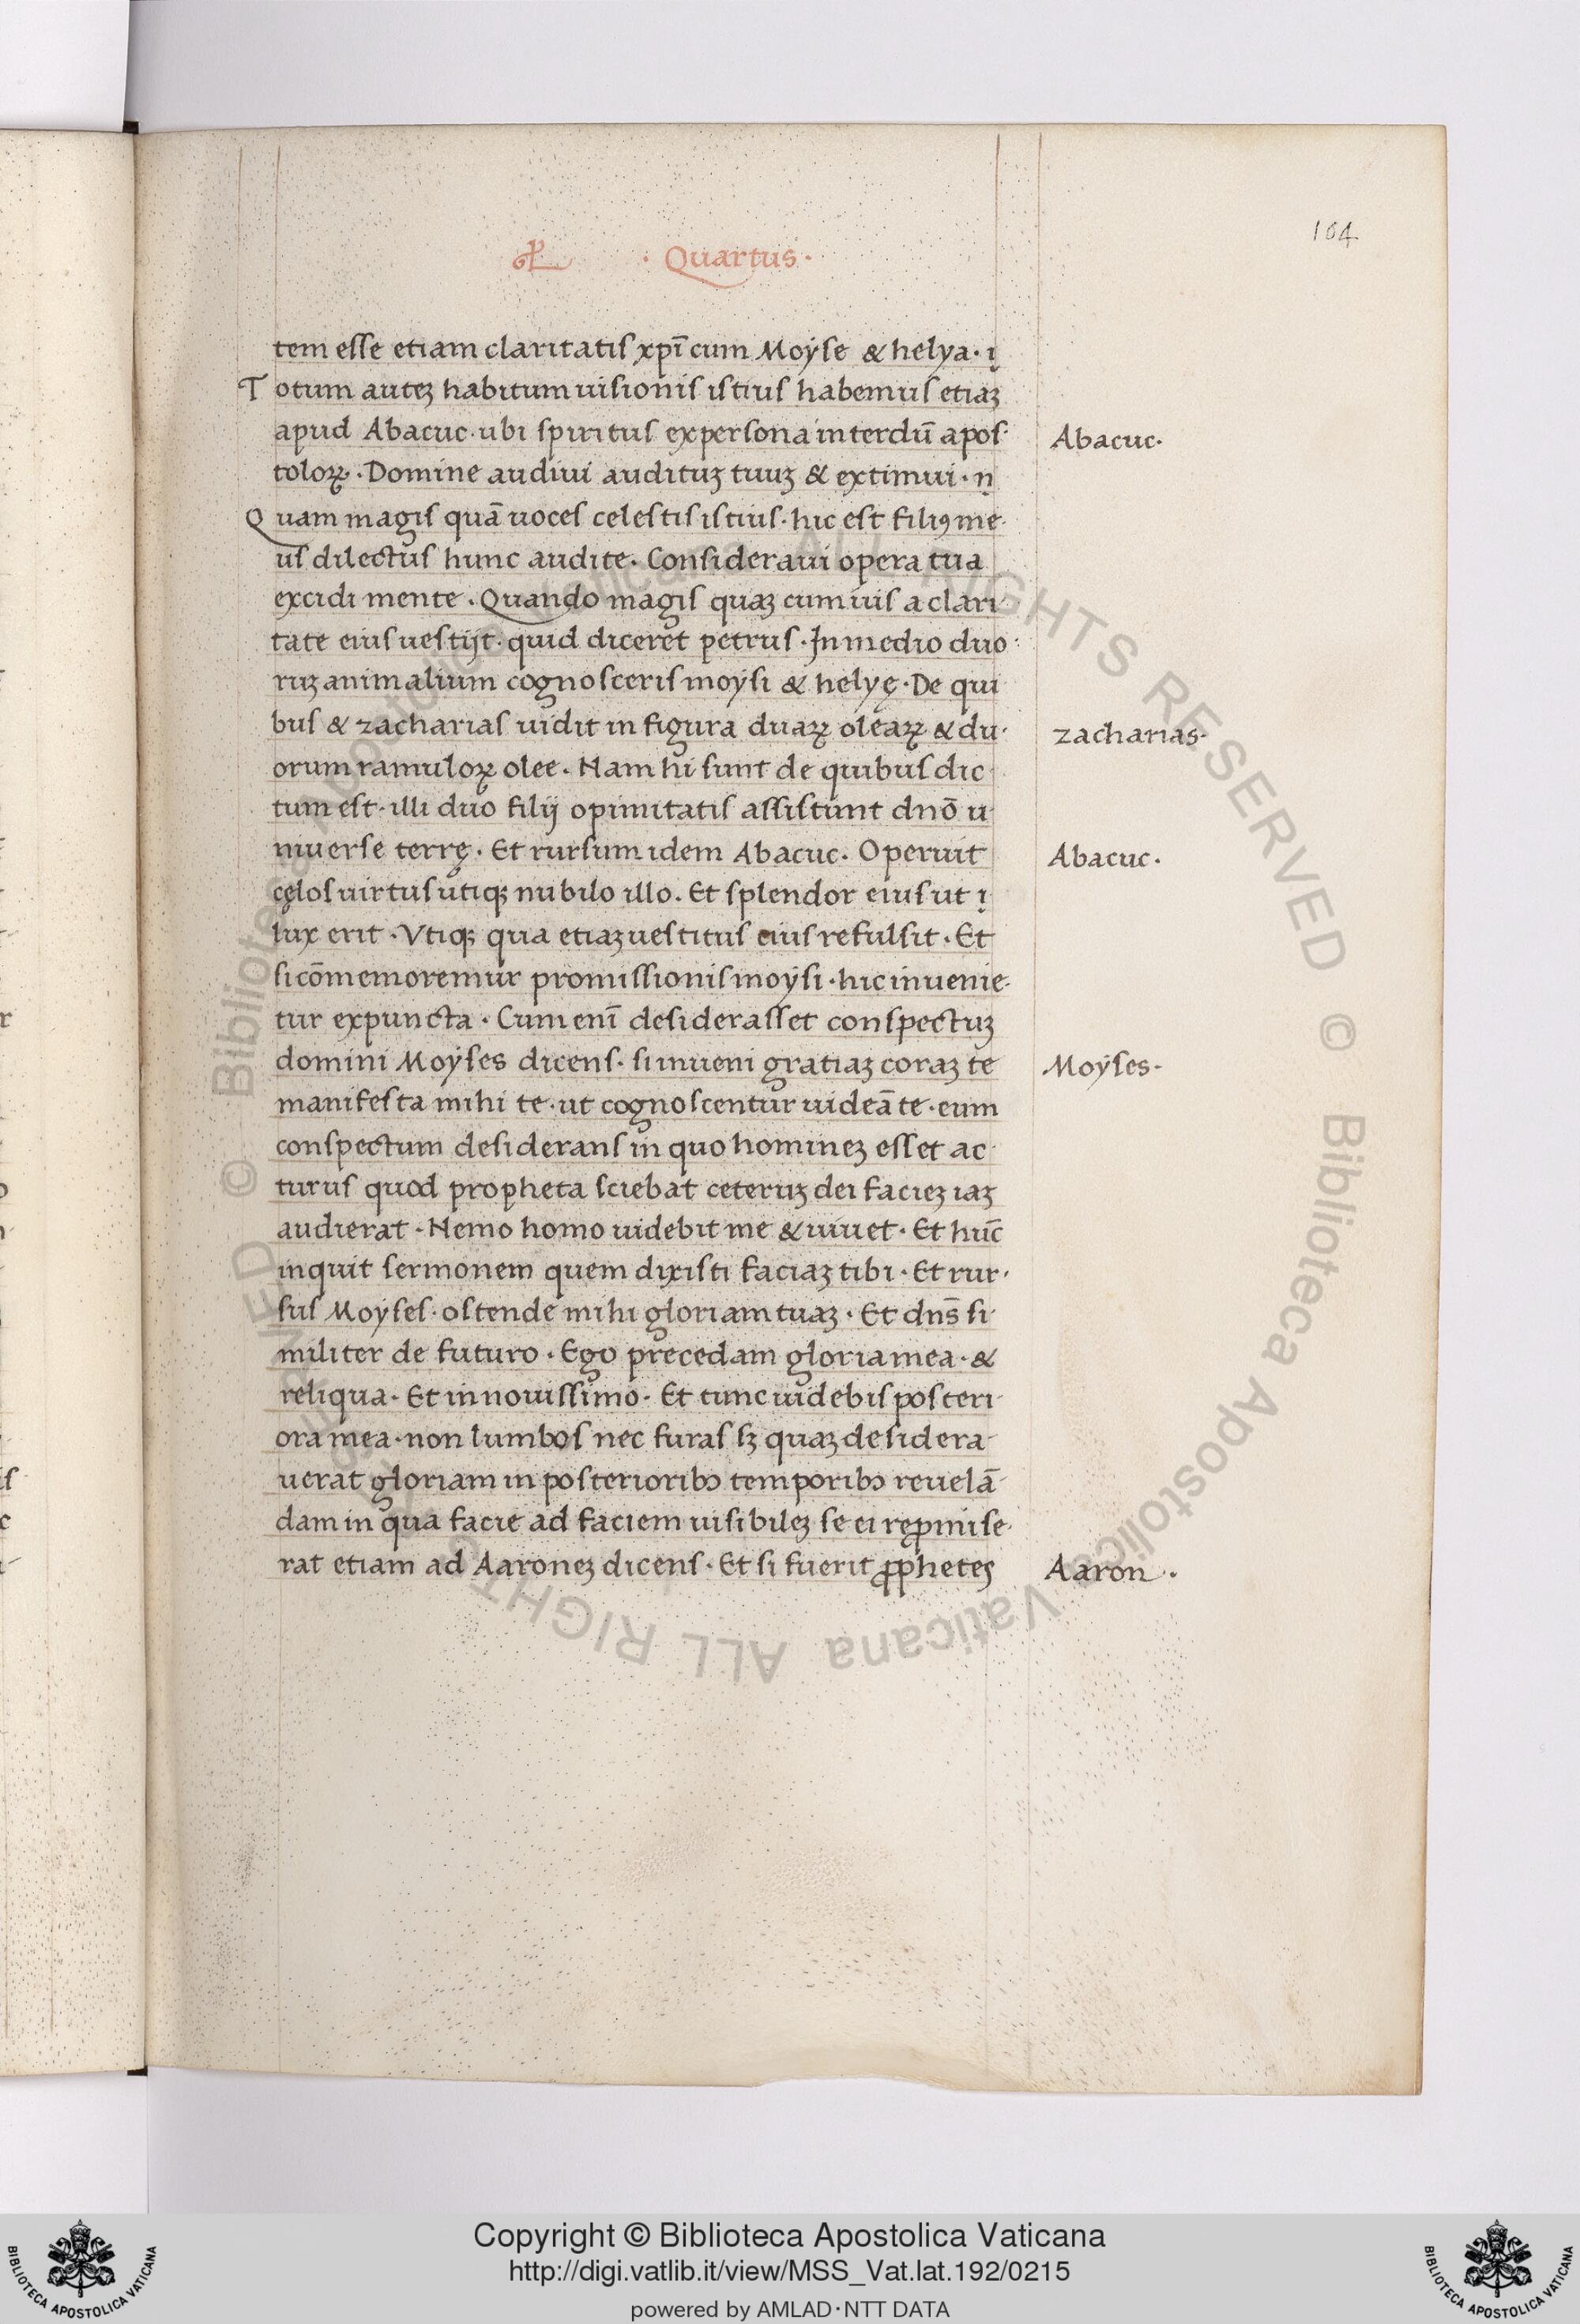 104
· Quartus ·
tem esse etiam claritatis xpī cum Moÿse & helya · ı
Totum auteꝫ habitum uisionis istius habemus etiaꝫ
apud Abacuc · ubi spiritus ex persona interdū apos·
Abacuc·
toloꝝ · Domine audiui audituꝫ tuuꝫ & extimui · n
Quam magis quā uoces celestis istius · hic est filiꝯ me·
us dilectus hunc audite · Consideraui opera tua
excidi mente · Quando magis quaꝫ cum uis a clari·
tate eius uestijt · quid diceret petrus · In medio duo·
ruꝫ animalium cognosceris moÿsi & helyę · De qui
bus & zacharias uidit in figura duaꝝ oleaꝝ & du·
zacharias·
orum ramuloꝝ olee · Nam hi sunt de quibus dic·
tum est · illi duo filij opimitatis assistunt dnō u·
niuerse terrę · Et rursum idem Abacuc · Operuit
Abacuc ·
cęlos uirtus utiqꝫ nubilo illo · Et splendor eius ut ı
lux erit · Vtiqꝫ qua etiaꝫ uestitus eius refulsit · Et
si cōmemoremur promissionis moÿsi · hic inuenie·
tur expuncta · Cum enī desiderasset conspectuꝫ
domini Moÿses dicens · si inueni gratiaꝫ coraꝫ te
Moÿses·
manifesta mihi te · ut cognoscentur uideā te · eum
conspectum desiderans in quo homineꝫ esset ac·
turus quod propheta sciebat ceteruꝫ dei facieꝫ iaꝫ
audierat · Nemo homo uidebit me & uiuet · Et hūc
inquit sermonem quem dixisti faciaꝫ tibi · Et rur·
sus Moyses · ostende mihi gloriam tuaꝫ · Et dns̄ si·
militer de futuro · Ego precedam gloria mea · &
reliqua · Et in nouissimo · Et tunc uidebis posteri·
ora mea · non lumbos nec furas sꝫ quaꝫ desidera·
uerat gloriam in posterioribꝰ temporibꝰ reuelā·
dam in qua facie ad faciem uisibileꝫ se ei reꝓmise·
rat etiam ad Aaroneꝫ dicens · Et si fuerit ꝓphetes
Aaron ·
Copyright © Biblioteca Apostolica Vaticana
http://digi.vatlib.it/view/MSS_Vat.lat.192/0215
powered by AMLAD·NTT DATA